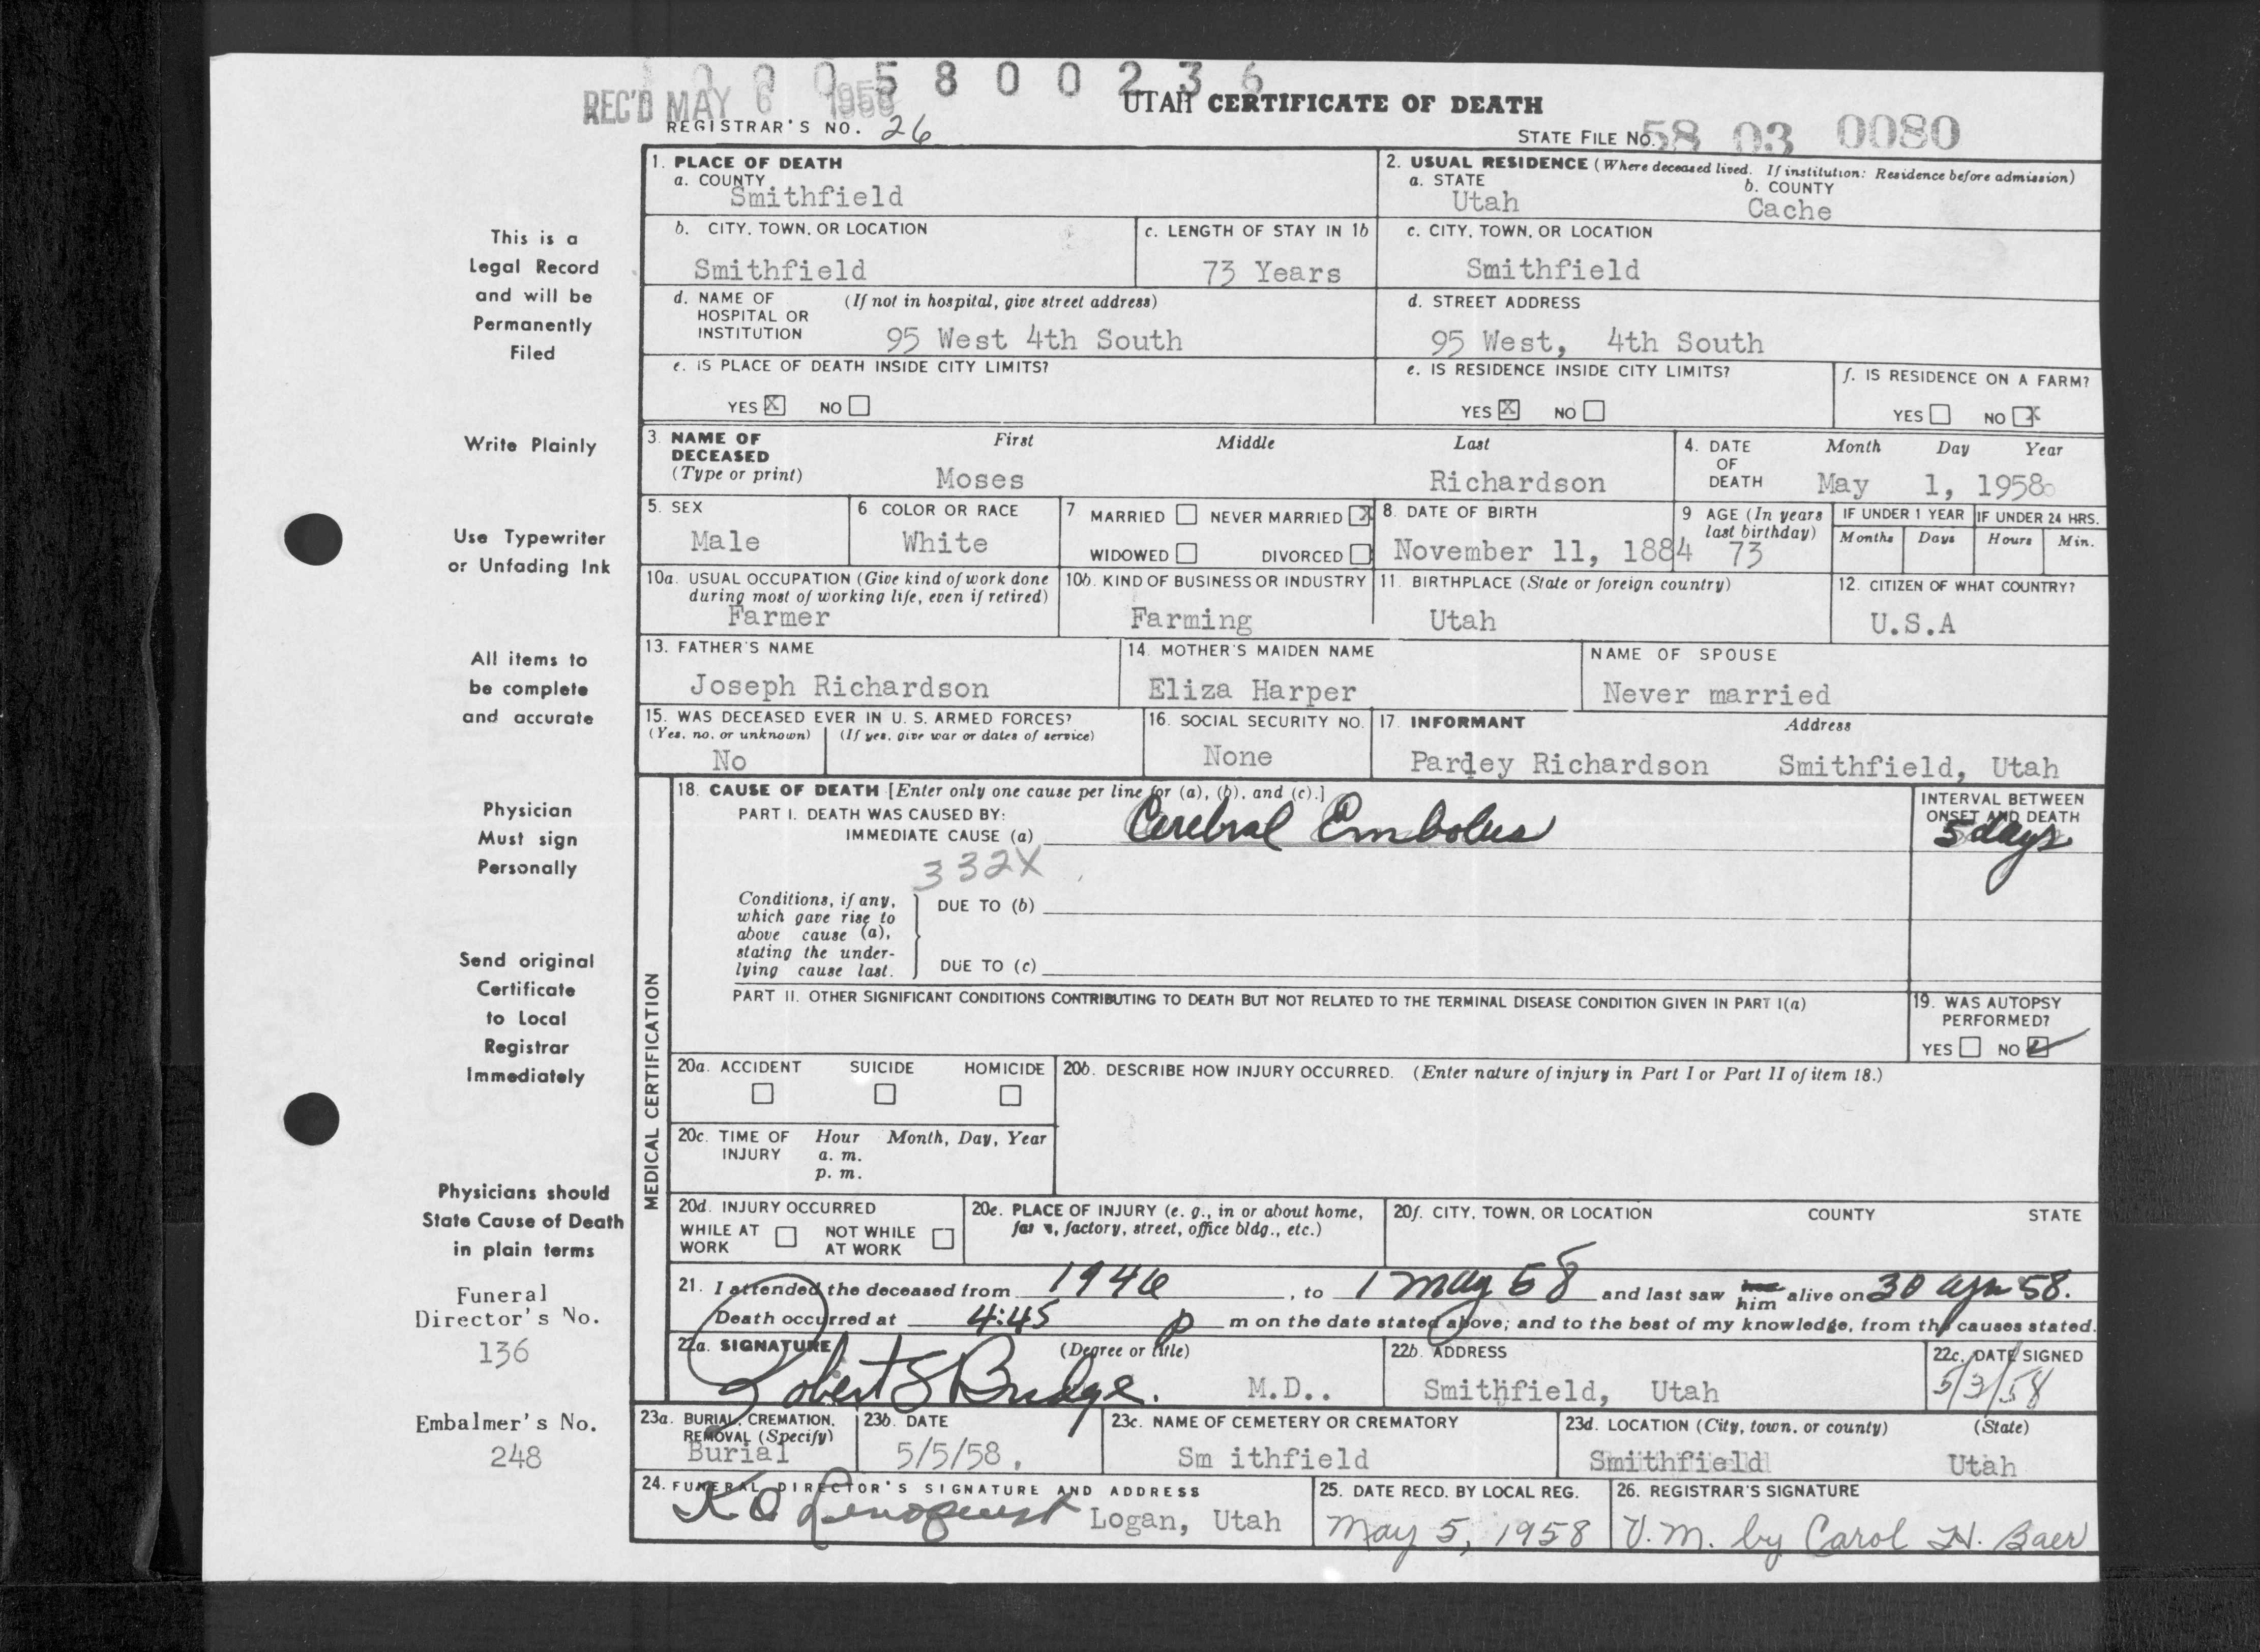 1 0 0 0 5 8 0 0 2 3 6
REC'D MAY 6 1958
UTAH CERTIFICATE OF DEATH
REGISTRAR'S NO. 26
STATE FILE NO. 58 03 0080
This is a
Legal Record
and will be
Permanently
Filed
Write Plainly
Use Typewriter
or Unfading Ink
All items to
be complete
and accurate
Physician
Must sign
Personally
Send original
Certificate
to Local
Registrar
Immediately
Physicians should
State Cause of Death
in plain terms
Funeral
Director's No.
136
Embalmer's No.
248
1. PLACE OF DEATH
a. COUNTY
Smithfield
2. USUAL RESIDENCE (Where deceased lived. If institution: Residence before admission)
a. STATE b. COUNTY
Utah Cache
b. CITY, TOWN, OR LOCATION
Smithfield
c. LENGTH OF STAY IN 1b
73 Years
c. CITY, TOWN, OR LOCATION
Smithfield
d. NAME OF (If not in hospital, give street address)
HOSPITAL OR
INSTITUTION 95 West 4th South
d. STREET ADDRESS
95 West, 4th South
e. IS PLACE OF DEATH INSIDE CITY LIMITS?
YES X NO
e. IS RESIDENCE INSIDE CITY LIMITS?
YES X NO
f. IS RESIDENCE ON A FARM?
YES NO X
3. NAME OF First Middle Last
DECEASED
(Type or print) Moses Richardson
4. DATE Month Day Year
OF
DEATH May 1, 1958
5. SEX
Male
6 COLOR OR RACE
White
7 MARRIED NEVER MARRIED X
WIDOWED DIVORCED
8. DATE OF BIRTH
November 11, 1884
9 AGE (In years
last birthday)
73
IF UNDER 1 YEAR IF UNDER 24 HRS.
Months Days Hours Min.
10a. USUAL OCCUPATION (Give kind of work done
during most of working life, even if retired)
Farmer
10b. KIND OF BUSINESS OR INDUSTRY
Farming
11. BIRTHPLACE (State or foreign country)
Utah
12. CITIZEN OF WHAT COUNTRY?
U.S.A
13. FATHER'S NAME
Joseph Richardson
14. MOTHER'S MAIDEN NAME
Eliza Harper
NAME OF SPOUSE
Never married
15. WAS DECEASED EVER IN U. S. ARMED FORCES?
(Yes, no, or unknown) (If yes, give war or dates of service)
No
16. SOCIAL SECURITY NO.
None
17. INFORMANT Address
Pardey Richardson Smithfield, Utah
MEDICAL CERTIFICATION
18. CAUSE OF DEATH [Enter only one cause per line for (a), (b), and (c).]
PART I. DEATH WAS CAUSED BY:
IMMEDIATE CAUSE (a) Cerebral Embolus
332X
INTERVAL BETWEEN
ONSET AND DEATH
5 days
Conditions, if any,
which gave rise to
above cause (a),
stating the under-
lying cause last.
DUE TO (b)
DUE TO (c)
PART II. OTHER SIGNIFICANT CONDITIONS CONTRIBUTING TO DEATH BUT NOT RELATED TO THE TERMINAL DISEASE CONDITION GIVEN IN PART I(a)
19. WAS AUTOPSY
PERFORMED?
YES NO ✓
20a. ACCIDENT SUICIDE HOMICIDE
20b. DESCRIBE HOW INJURY OCCURRED. (Enter nature of injury in Part I or Part II of item 18.)
20c. TIME OF Hour Month, Day, Year
INJURY a. m.
p. m.
20d. INJURY OCCURRED
WHILE AT NOT WHILE
WORK AT WORK
20e. PLACE OF INJURY (e. g., in or about home,
farm, factory, street, office bldg., etc.)
20f. CITY, TOWN, OR LOCATION COUNTY STATE
21. I attended the deceased from 1946, to 1 May 58 and last saw her him alive on 30 Apr 58.
Death occurred at 4:45 p m on the date stated above; and to the best of my knowledge, from the causes stated.
22a. SIGNATURE (Degree or title)
Robert S Budge. M.D..
22b. ADDRESS
Smithfield, Utah
22c. DATE SIGNED
5/3/58
23a. BURIAL, CREMATION,
REMOVAL (Specify)
Burial
23b. DATE
5/5/58,
23c. NAME OF CEMETERY OR CREMATORY
Sm ithfield
23d. LOCATION (City, town, or county) (State)
Smithfield Utah
24. FUNERAL DIRECTOR'S SIGNATURE AND ADDRESS
K O Lindquist Logan, Utah
25. DATE RECD. BY LOCAL REG.
May 5, 1958
26. REGISTRAR'S SIGNATURE
V. M. by Carol H. Baer